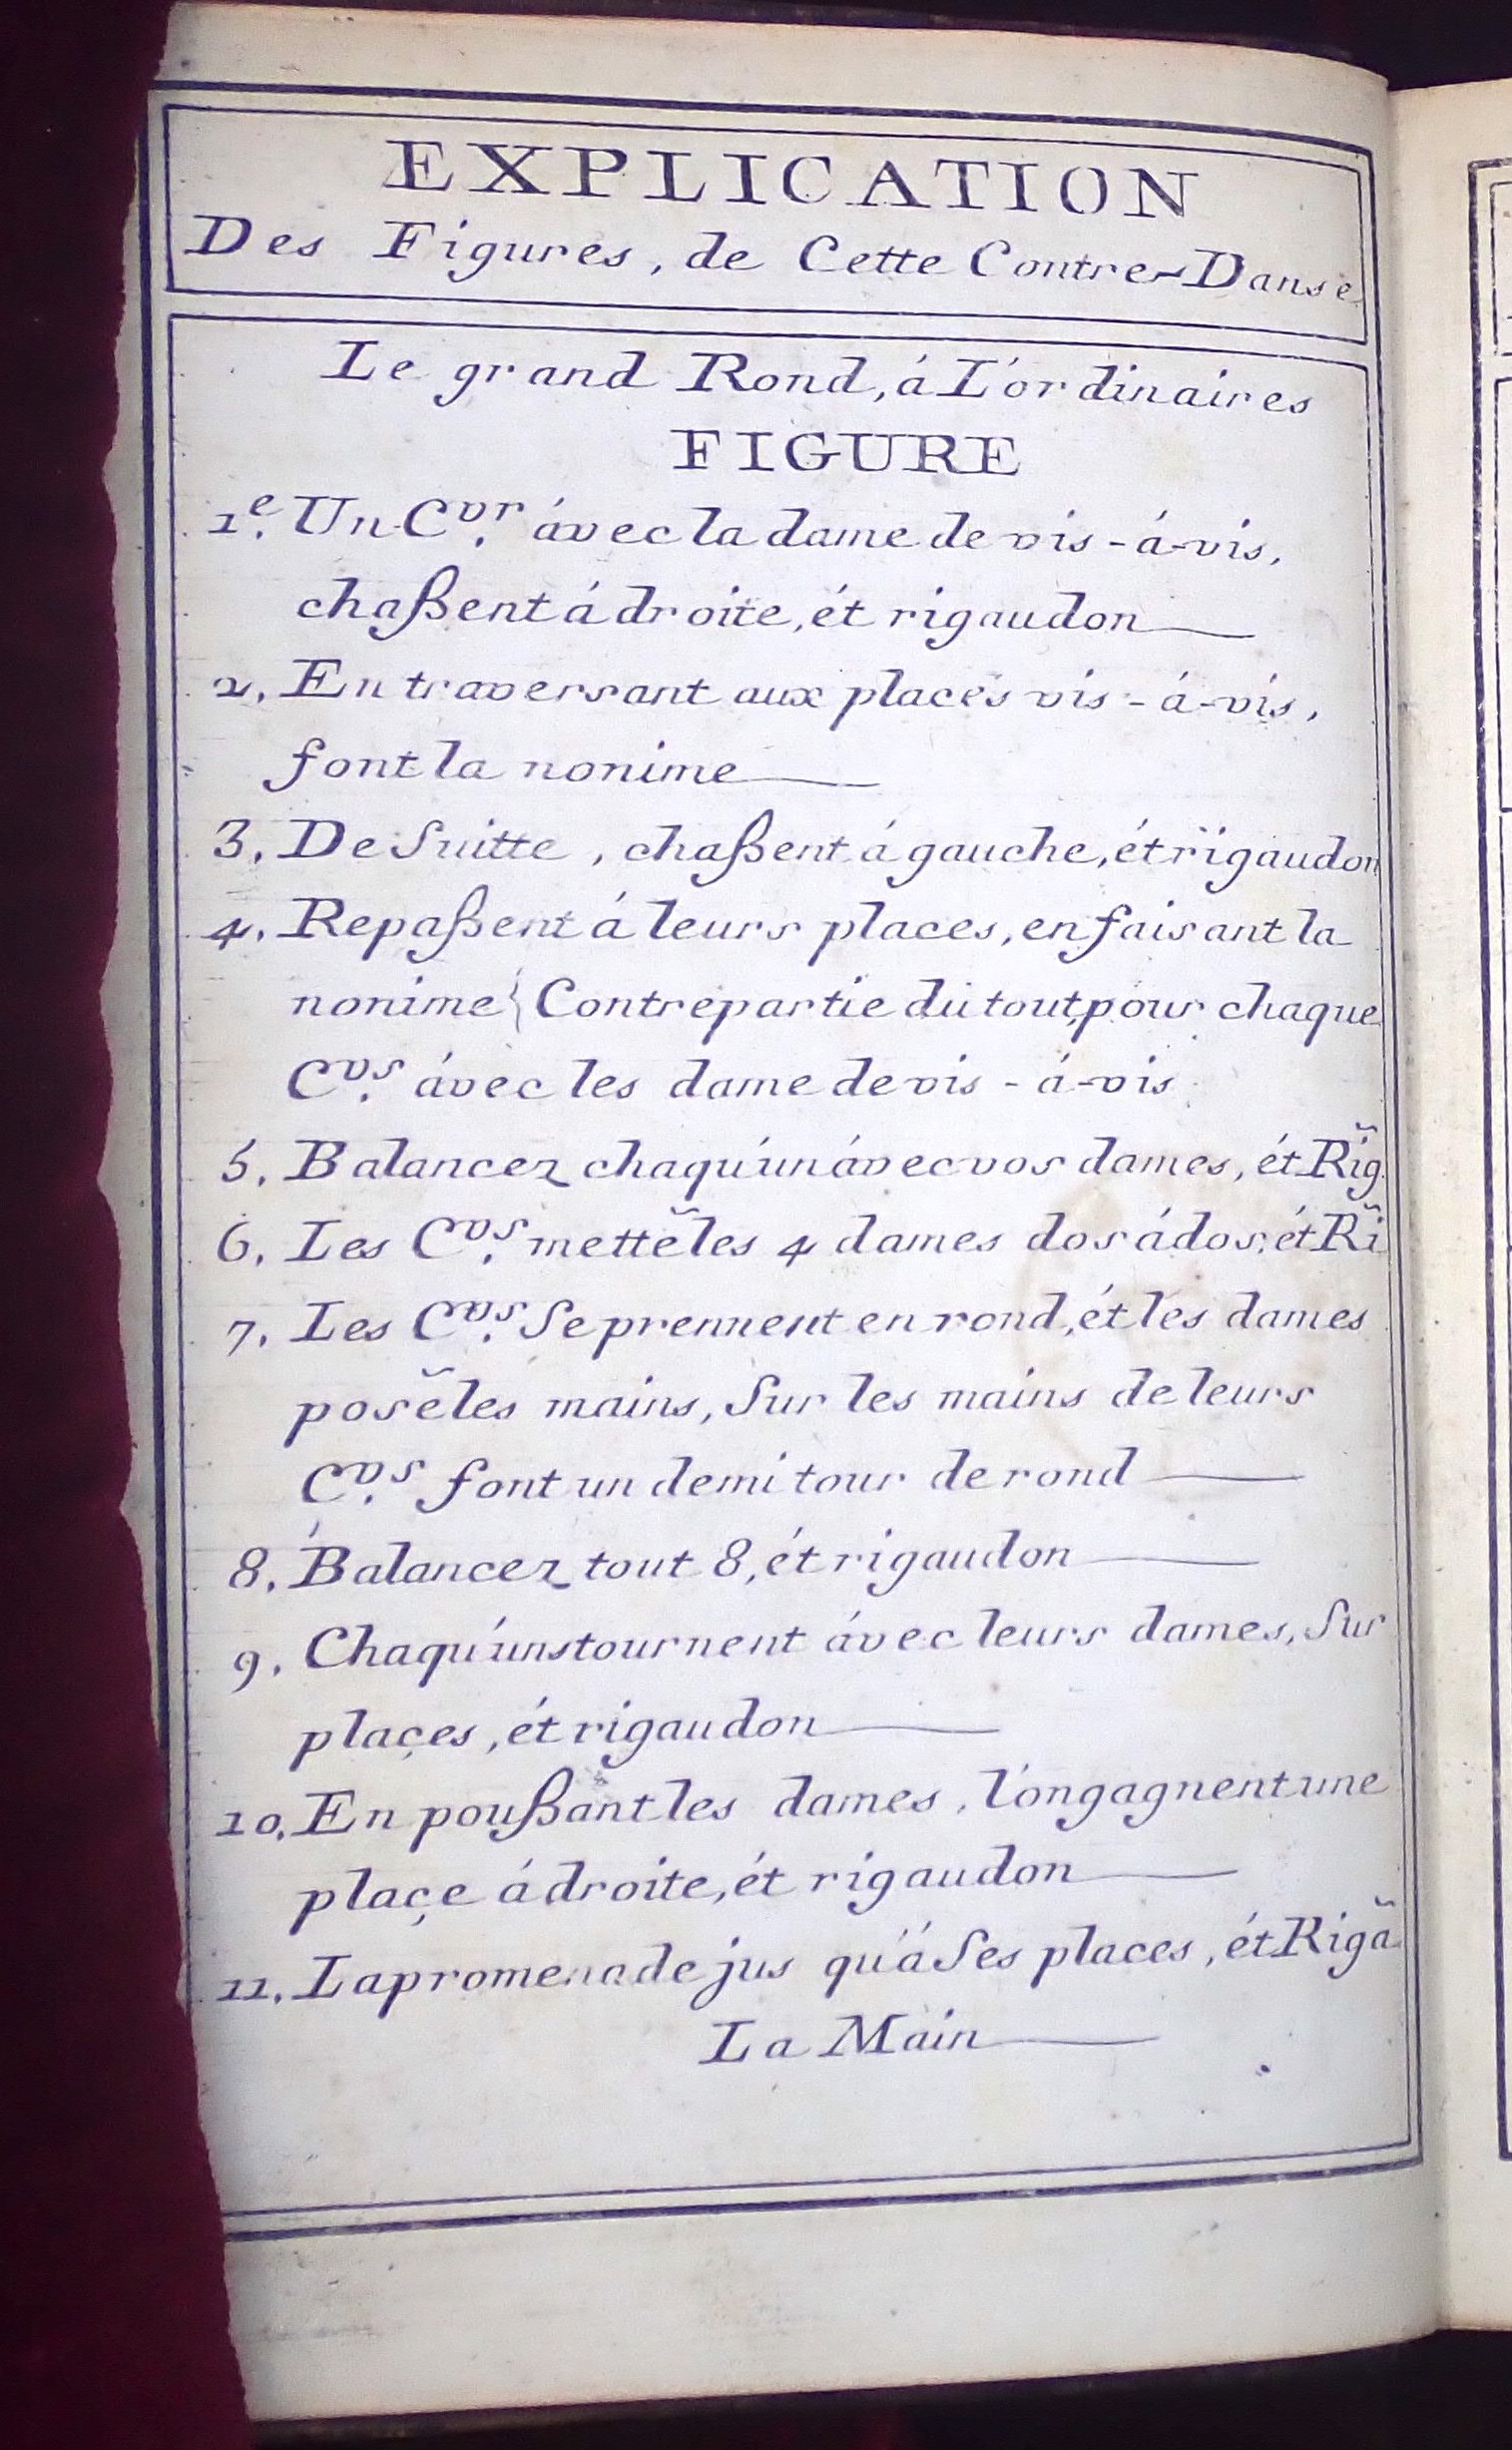 EXPLICATION
Des Figures, de Cette Contre-Danse
Le grand Rond, á L'ordinaires
FIGURE
1e. Un Cvr. ávec la dame de vis-á-vis,
chaßent á droite, ét rigaudon
2, En traversant aux places vis-á-vis,
font la nonime
3, De Suitte, chaßent á gauche, ét rigaudon
4, Repaßent á leurs places, en faisant la
nonime { Contrepartie du tout, pour chaque
Cvs. ávec les dame de vis-á-vis
5, Balancez chaqu'un ávec vos dames, ét Rig̃
6, Les Cvs. mettẽ les 4 dames dos á dos, ét Rĩ
7, Les Cvs. Se prennent en rond, ét les dames
posẽ les mains, Sur les mains de leurs
Cvs. font un demi tour de rond
8, Balancez tout 8, ét rigaudon
9, Chaqu'uns tournent ávec leurs dames, Sur
plaçes, ét rigaudon
10, En poußant les dames, l'on gagnent une
plaçe á droite, ét rigaudon
11, La promenade jus qu'á Ses places, ét Rigã
La Main